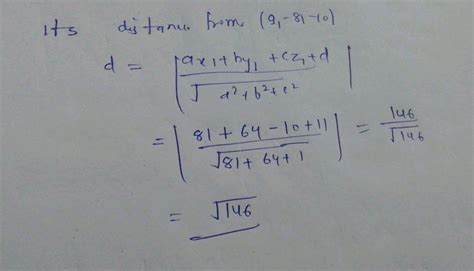 Its distance from (9,-8,-10)
d = | ax₁+by₁+cz₁+d / √a²+b²+c² |
= | 81+64-10+11 / √81+64+1 | = 146/√146
= √146